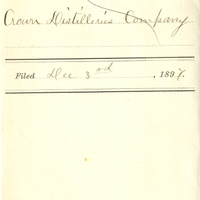 Crown Distilleries Company
Filed Dec 3rd, 1897.